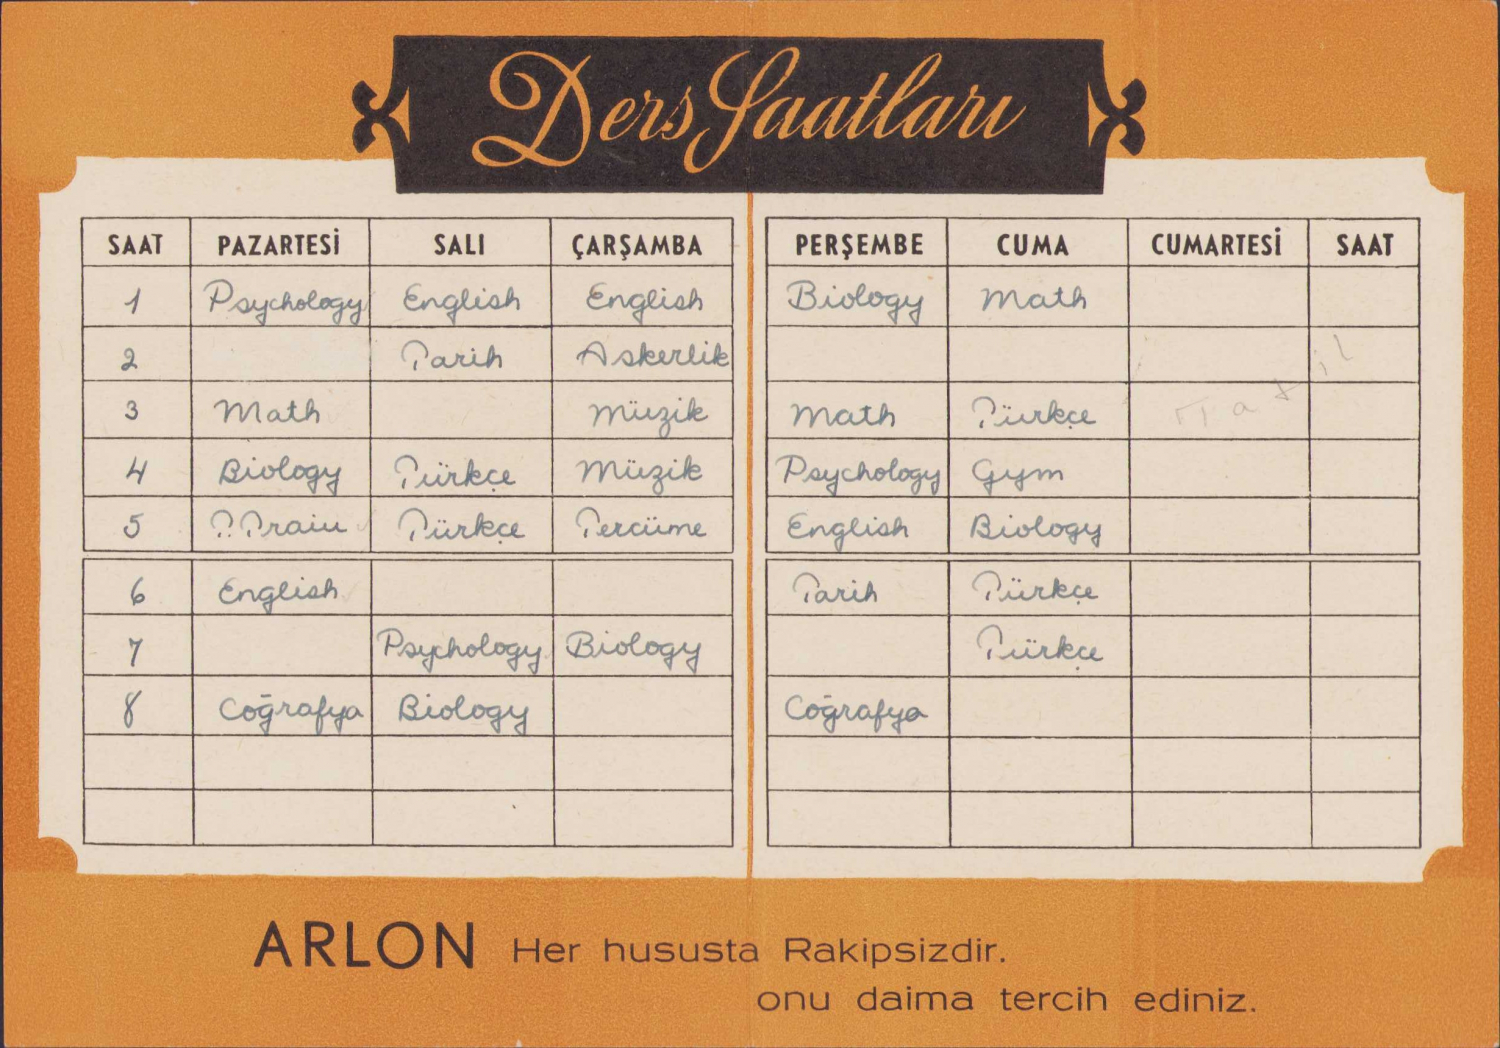 Ders Saatları
SAAT PAZARTESİ SALI ÇARŞAMBA PERŞEMBE CUMA CUMARTESİ SAAT
1 Psychology English English Biology Math
2 Tarih Askerlik
3 Math Müzik Math Türkçe Tatil
4 Biology Türkçe Müzik Psychology Gym
5 Türkçe Tercüme English Biology
6 English Tarih Türkçe
7 Psychology Biology Türkçe
8 Coğrafya Biology Coğrafya
ARLON Her hususta Rakipsizdir.
onu daima tercih ediniz.